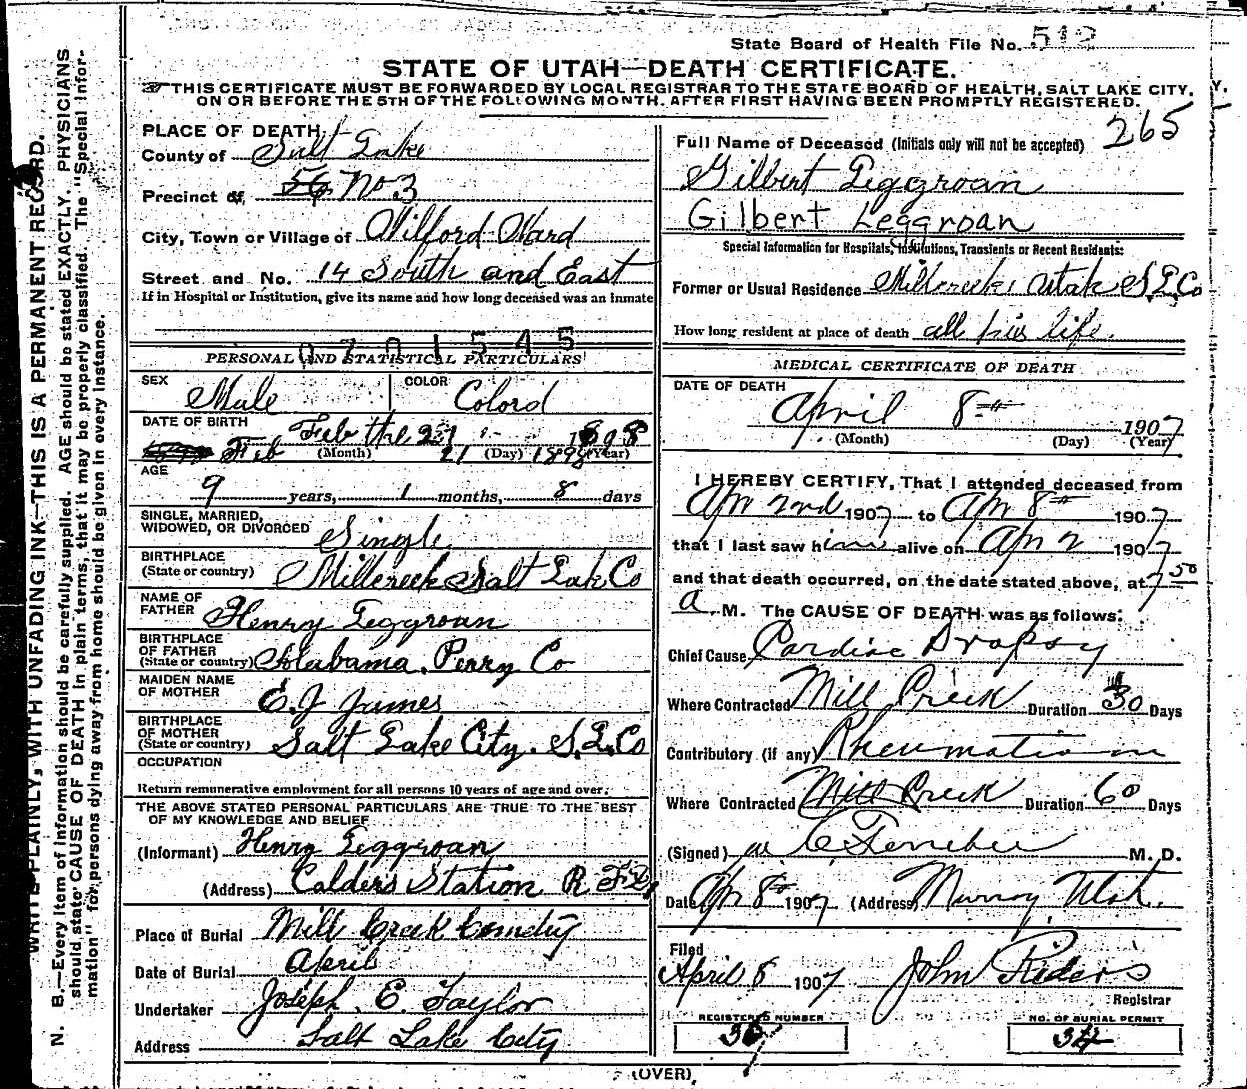 State Board of Health File No. 512
STATE OF UTAH—DEATH CERTIFICATE.
THIS CERTIFICATE MUST BE FORWARDED BY LOCAL REGISTRAR TO THE STATE BOARD OF HEALTH, SALT LAKE CITY,
ON OR BEFORE THE 5TH OF THE FOLLOWING MONTH, AFTER FIRST HAVING BEEN PROMPTLY REGISTERED.
265
WRITE PLAINLY, WITH UNFADING INK—THIS IS A PERMANENT RECORD.
N. B.—Every item of information should be carefully supplied. AGE should be stated EXACTLY. PHYSICIANS
should state CAUSE OF DEATH in plain terms, that it may be properly classified. The "Special Infor-
mation" for persons dying away from home should be given in every instance.
PLACE OF DEATH
County of Salt Lake
Precinct of No 3
City, Town or Village of Wilford Ward
Street and No. 14 South and East
If in Hospital or Institution, give its name and how long deceased was an inmate
0701545
PERSONAL AND STATISTICAL PARTICULARS
SEX Male COLOR Colord
DATE OF BIRTH Feb the 21 1898
Feb (Month) 21 (Day) 1898 (Year)
AGE
9 years, 1 months, 8 days
SINGLE, MARRIED,
WIDOWED, OR DIVORCED Single
BIRTHPLACE
(State or country) Millcreek Salt Lak Co
NAME OF
FATHER Henry Leggroan
BIRTHPLACE
OF FATHER
(State or country) Alabama, Perry Co
MAIDEN NAME
OF MOTHER E. J James
BIRTHPLACE
OF MOTHER
(State or country) Salt Lake City. S. L. Co
OCCUPATION
Return remunerative employment for all persons 10 years of age and over.
THE ABOVE STATED PERSONAL PARTICULARS ARE TRUE TO THE BEST
OF MY KNOWLEDGE AND BELIEF
(Informant) Henry Leggroan
(Address) Calders Station R F D
Place of Burial Mill Creek Cemetry
Date of Burial April
Undertaker Joseph E. Taylor
Address Salt Lake City
Full Name of Deceased (Initials only will not be accepted)
Gilbert Leggroan
Gilbert Leggroan
Special Information for Hospitals, Institutions, Transients or Recent Residents:
Former or Usual Residence Millcreek Utah S. L. Co
How long resident at place of death all his life.
MEDICAL CERTIFICATE OF DEATH
DATE OF DEATH
April 8th 1907
(Month) (Day) (Year)
I HEREBY CERTIFY, That I attended deceased from
Apr 2nd 1907 to Apr 8th 1907
that I last saw him alive on Apr 2 1907
and that death occurred, on the date stated above, at 7 50
a M. The CAUSE OF DEATH was as follows:
Chief Cause Cardiac Dropsy
Where Contracted Mill Creek Duration 30 Days
Contributory (if any) Rheumatism
Where Contracted Mill Creek Duration 60 Days
(Signed) M. D.
Date Apr 8th 1907 (Address) Murray, Utah.
Filed
April 8 1907 John Riders
Registrar
REGISTERED NUMBER
NO. OF BURIAL PERMIT
34
(OVER)